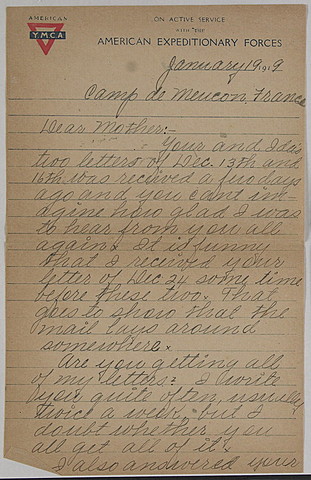 AMERICAN
YMCA
ON ACTIVE SERVICE
WITH THE
AMERICAN EXPEDITIONARY FORCES
January 19 1919
Camp de Meucon, France
Dear Mother:-
Your and Ida's
two letters of Dec. 13th and
16th was received a few days
ago and you cant im-
agine how glad I was
to hear from you all
again. It is funny
that I received your
letter of Dec 24 some time
before these two. That
goes to show that the
mail lays around
somewhere.
Are you getting all
of my letters? I write
you quite often, usually
twice a week, but I
doubt whether you
all get all of it.
I also answered your